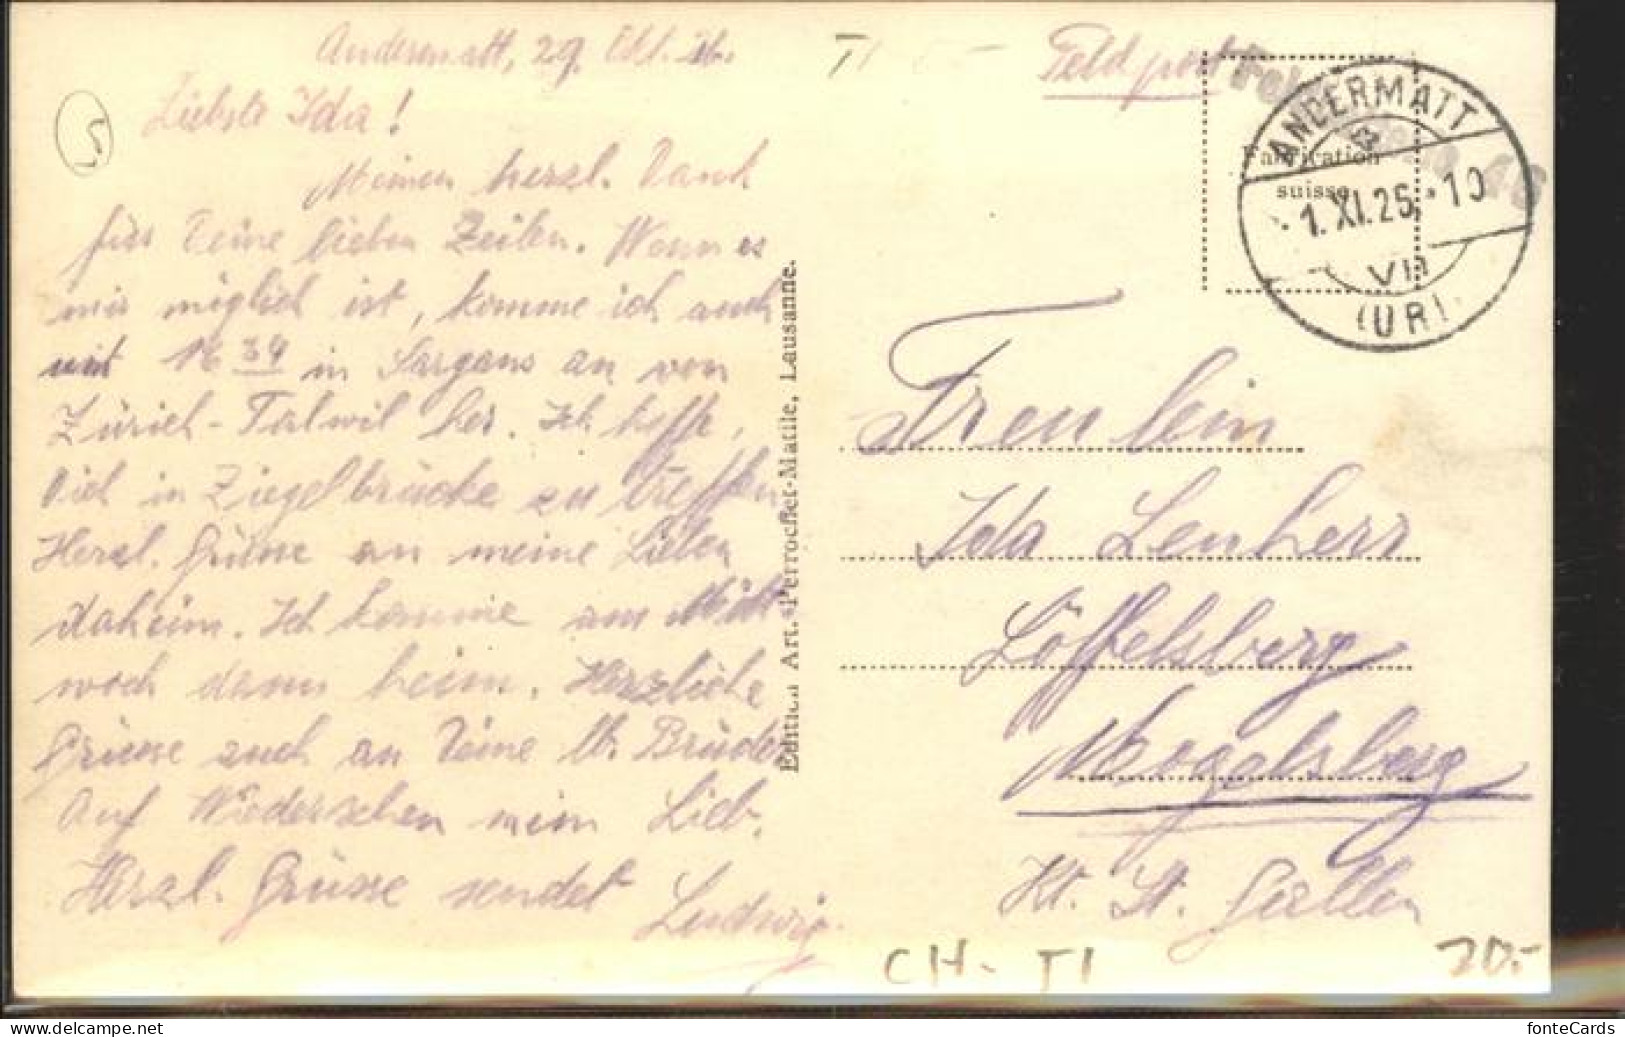 Andermatt, 29. Okt.
Liebste Ida!
Meinen herzl. Dank
für Deine lieben Zeilen. Wenn es
mir möglich ist, komme ich auch
mit 16 39 in Sargans an von
Zürich-Talwil her. Ich hoffe,
Dich in Ziegelbrücke zu treffen
Herzl. Grüsse an meine Lieben
daheim. Ich komme am Mitt
woch dann heim. Herzliche
Grüsse auch an Deine lb. Brüder
Auf Wiedersehen mein Lieb.
Herzl. Grüsse sendet
Ludwig.
5
Edition Art. Perrochet-Matile, Lausanne.
TI
Feldpost
Fabrication
suisse
ANDERMATT
1.XI.25.-10
VII
(UR)
Freulein
Ida Lenherr
Löffelsberg
Mogelsberg
Kt. St. Gallen
CH-TI
20.-
www.delcampe.net
fonteCards